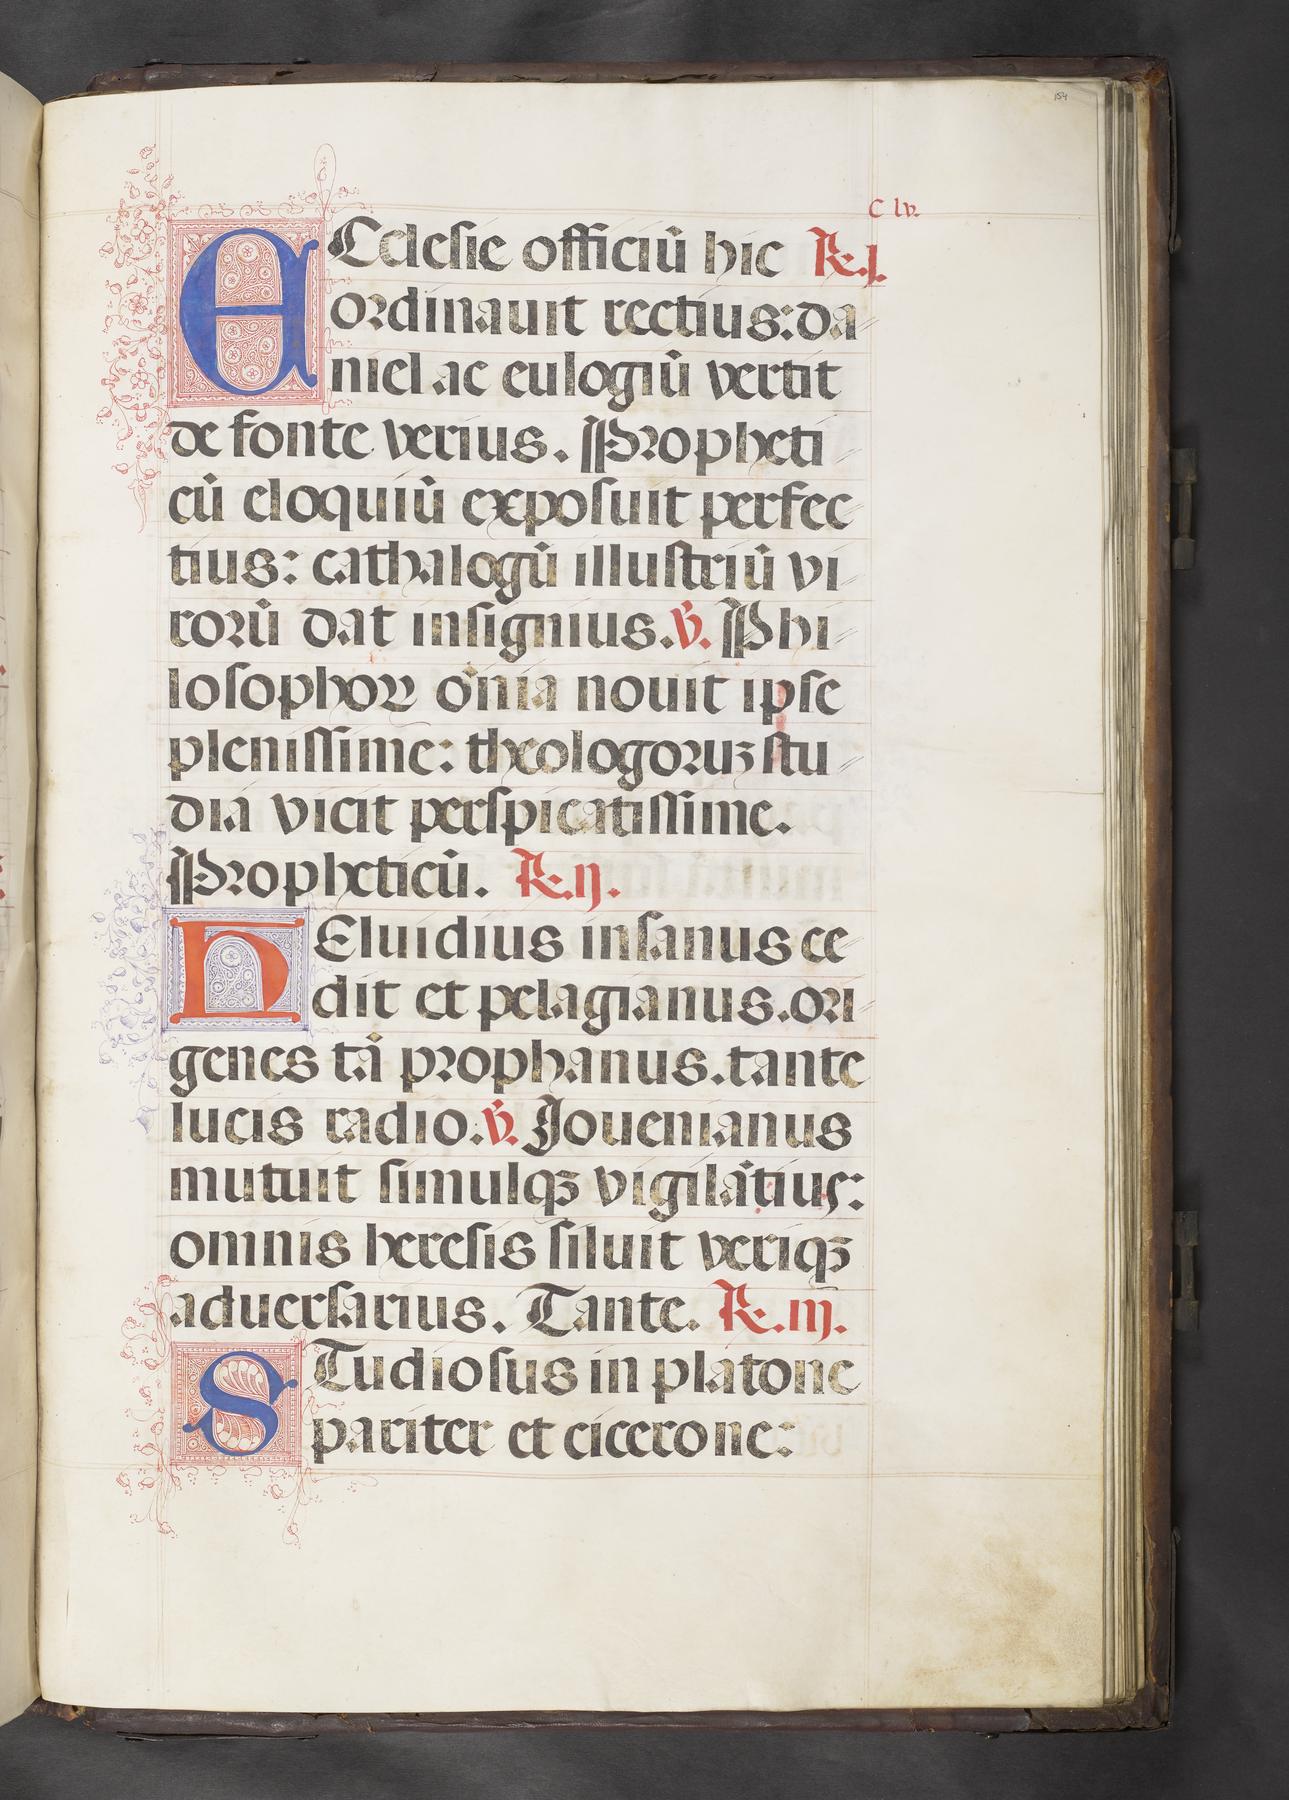 154
C lv.
ECclesie officiū hic R. j.
ordinauit rectius: da
niel ac eulogiū vertit
de fonte verius. Propheti
cū eloquiū exposuit perfec
tius: cathalogū illustriū vi
rorū dat insignius. V. Phi
losophoꝝ oīnia nouit ipse
plenissime: theologoruz stu
dia vicit perspicatissime.
Propheticū. R. ij.
HEluidius insanus ce
dit et pelagianus. ori
genes tā prophanus. tante
lucis radio. V. Jouenianus
mutuit simulqꝫ vigilātius:
omnis heresis siluit veriqꝫ
aduersarius. Tante. R. iij.
STudiosus in platone
pariter et cicerone: